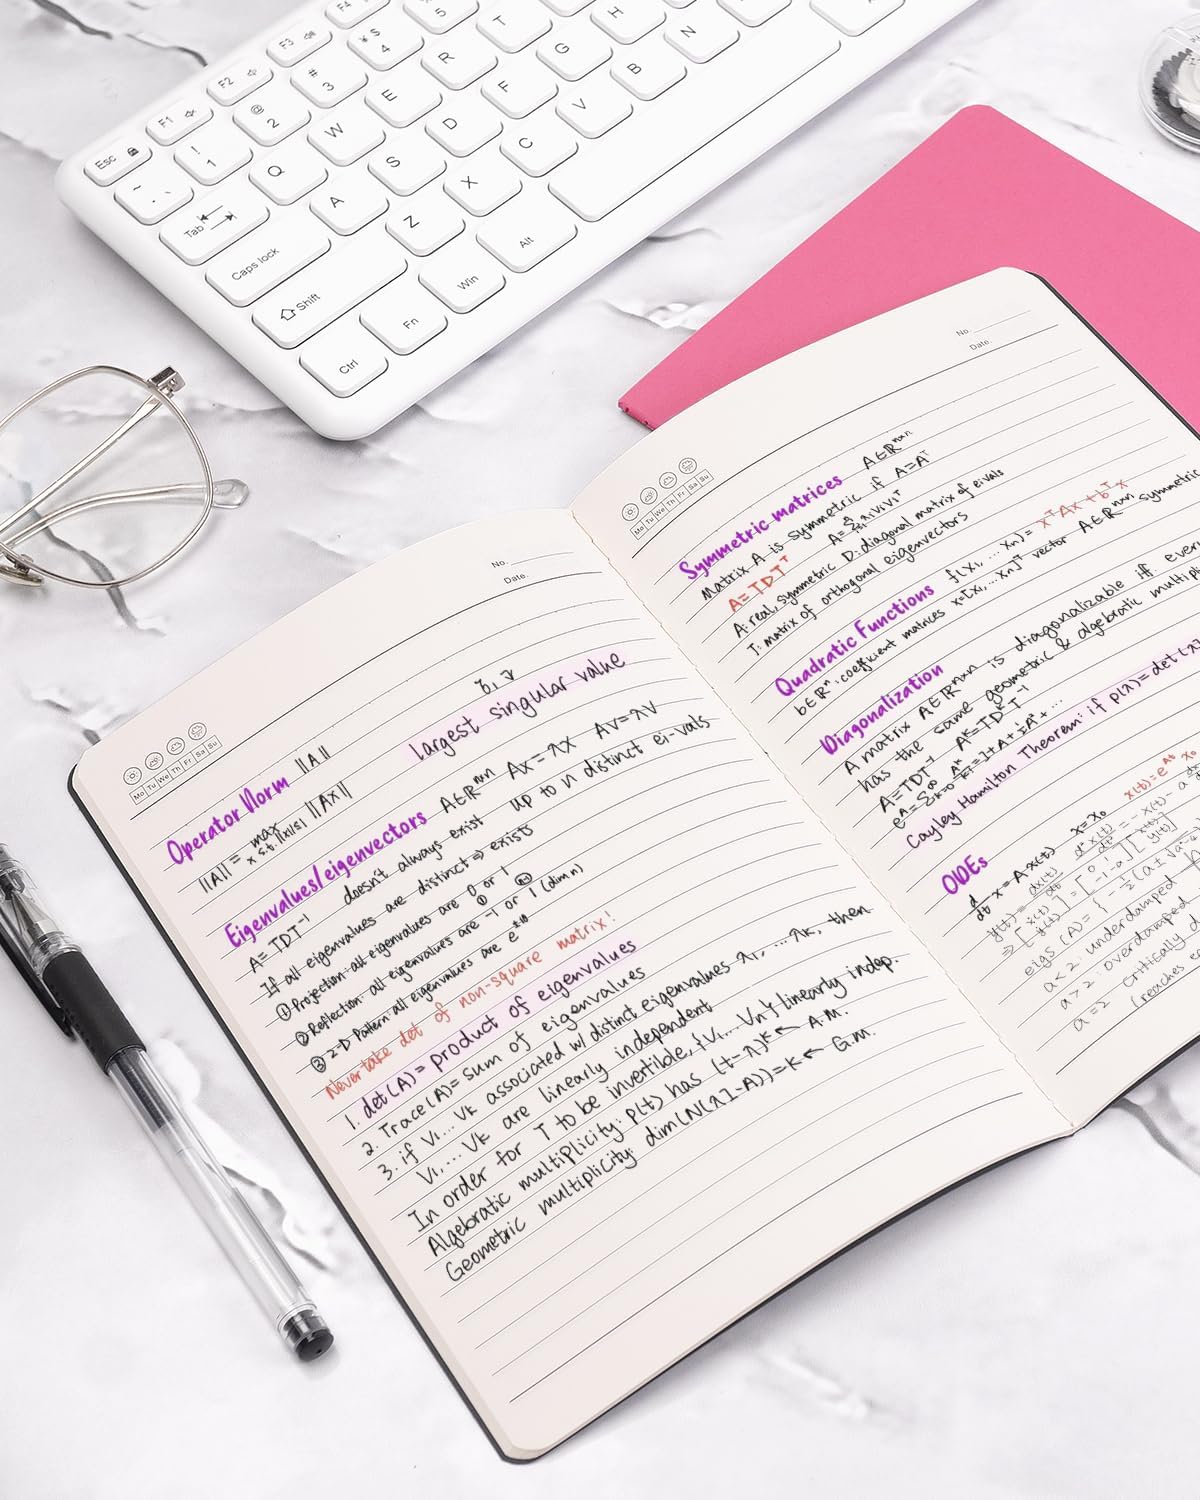 Esc F1 F2 F3 F4
~ ` ! 1 @ 2 # 3 ¥ $ 4 5
Tab Q W E R T
Caps lock A S D F G H
Shift Z X C V B N
Ctrl Fn Win Alt
No.
Date.
Mo Tu We Th Fr Sa Su
Operator Norm ||A||
largest singular value
||A|| = max x s.t. ||x||≤1 ||Ax||
Eigenvalues/eigenvectors A∈ℝⁿˣⁿ Ax=λx Av=λv
A=TDT⁻¹ doesn't always exist up to n distinct ei-vals
If all eigenvalues are distinct ⇒ exists
① Projection: all eigenvalues are 0 or 1
② Reflection: all eigenvalues are -1 or 1 (dim n)
③ 2-D Pattern: all eigenvalues are
Never take det of non-square matrix!
1. det(A)= product of eigenvalues
2. Trace(A)= sum of eigenvalues
3. if V₁... Vk associated w/ distinct eigenvalues λ₁, ... λk, then
V₁,... Vk are linearly independent
In order for T to be invertible, {V₁... Vn} linearly indep.
Algebratic multiplicity: P(t) has (t-λ)ᵏ ← A.M.
Geometric multiplicity: dim(N(λI-A))=k ← G.M.
No.
Date.
Mo Tu We Th Fr Sa Su
Symmetric matrices A∈ℝⁿˣⁿ
Matrix A is symmetric if A=Aᵀ
A=TDTᵀ
A: real, symmetric D: diagonal matrix of eivals
T: matrix of orthogonal eigenvectors
Quadratic Functions f(x₁, ... xn)= xᵀAx+bᵀx
b∈ℝⁿ: coefficient matrices x=[x₁,...xn]ᵀ vector A∈ℝⁿˣⁿ symmetric
Diagonalization
A matrix A∈ℝⁿˣⁿ is diagonalizable iff every
has the same geometric & algebratic
A=TDT⁻¹ Aᵏ=TDᵏT⁻¹
Cayley Hamilton Theorem: if p(λ)=det
ODEs
d/dt x=A·x(t) x=x₀
eigs (A)=
a<2: underdamped
a>2: overdamped
a=2 critically
(reaches